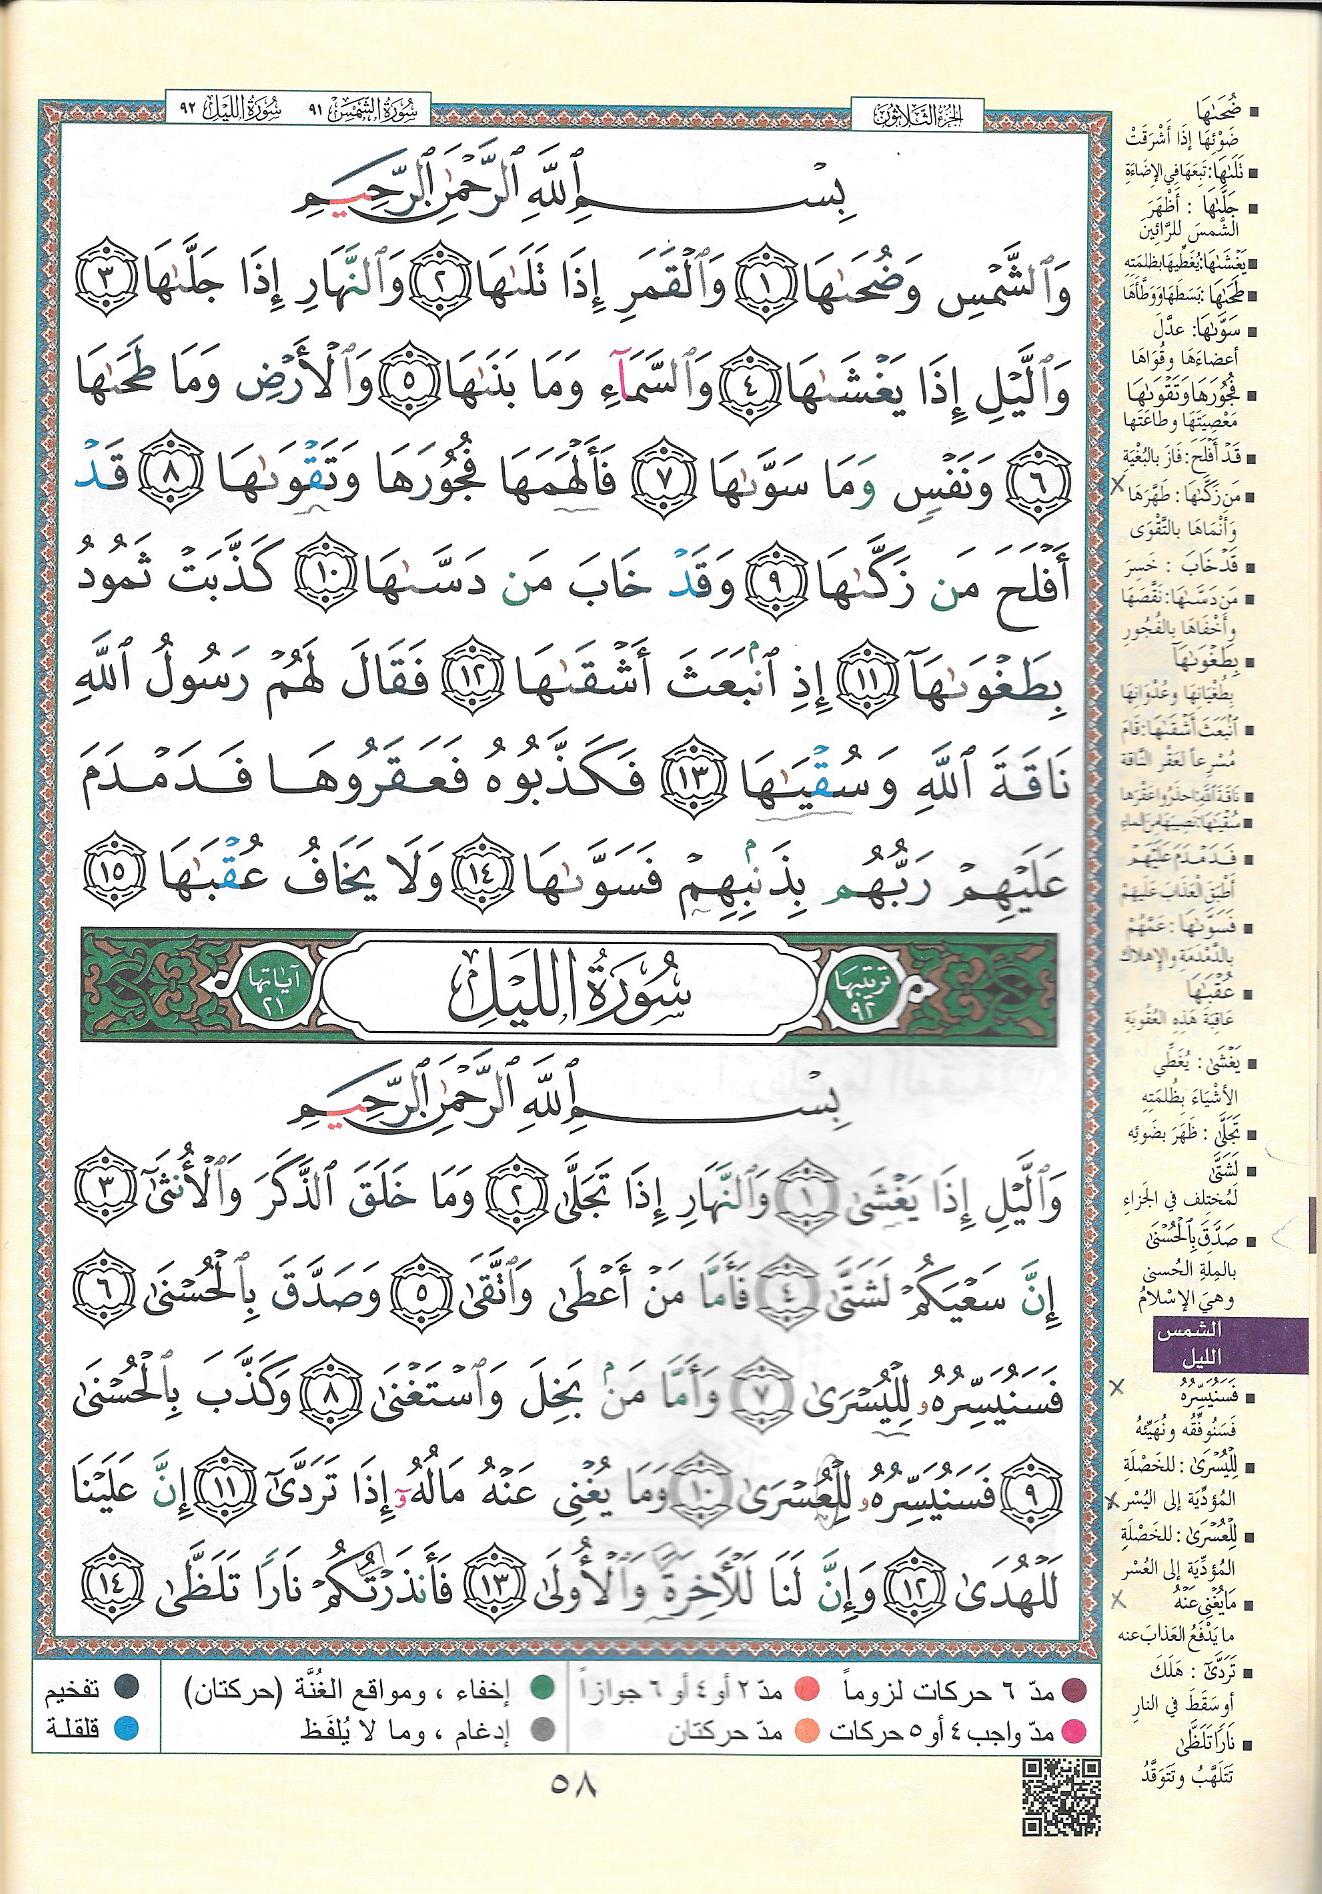 الجزء الثلاثون
سورة الشمس ٩١ سورة الليل ٩٢
بِسْمِ ٱللَّهِ ٱلرَّحْمَٰنِ ٱلرَّحِيمِ
وَٱلشَّمْسِ وَضُحَىٰهَا ١ وَٱلْقَمَرِ إِذَا تَلَىٰهَا ٢ وَٱلنَّهَارِ إِذَا جَلَّىٰهَا ٣
وَٱلَّيْلِ إِذَا يَغْشَىٰهَا ٤ وَٱلسَّمَآءِ وَمَا بَنَىٰهَا ٥ وَٱلْأَرْضِ وَمَا طَحَىٰهَا
٦ وَنَفْسٍ وَمَا سَوَّىٰهَا ٧ فَأَلْهَمَهَا فُجُورَهَا وَتَقْوَىٰهَا ٨ قَدْ
أَفْلَحَ مَن زَكَّىٰهَا ٩ وَقَدْ خَابَ مَن دَسَّىٰهَا ١٠ كَذَّبَتْ ثَمُودُ
بِطَغْوَىٰهَآ ١١ إِذِ ٱنۢبَعَثَ أَشْقَىٰهَا ١٢ فَقَالَ لَهُمْ رَسُولُ ٱللَّهِ
نَاقَةَ ٱللَّهِ وَسُقْيَٰهَا ١٣ فَكَذَّبُوهُ فَعَقَرُوهَا فَدَمْدَمَ
عَلَيْهِمْ رَبُّهُم بِذَنۢبِهِمْ فَسَوَّىٰهَا ١٤ وَلَا يَخَافُ عُقْبَٰهَا ١٥
ترتيبها ٩٢ سُورَةُ اللَّيْلِ آياتها ٢١
بِسْمِ ٱللَّهِ ٱلرَّحْمَٰنِ ٱلرَّحِيمِ
وَٱلَّيْلِ إِذَا يَغْشَىٰ ١ وَٱلنَّهَارِ إِذَا تَجَلَّىٰ ٢ وَمَا خَلَقَ ٱلذَّكَرَ وَٱلْأُنثَىٰٓ ٣
إِنَّ سَعْيَكُمْ لَشَتَّىٰ ٤ فَأَمَّا مَنْ أَعْطَىٰ وَٱتَّقَىٰ ٥ وَصَدَّقَ بِٱلْحُسْنَىٰ ٦
فَسَنُيَسِّرُهُۥ لِلْيُسْرَىٰ ٧ وَأَمَّا مَنۢ بَخِلَ وَٱسْتَغْنَىٰ ٨ وَكَذَّبَ بِٱلْحُسْنَىٰ
٩ فَسَنُيَسِّرُهُۥ لِلْعُسْرَىٰ ١٠ وَمَا يُغْنِى عَنْهُ مَالُهُۥٓ إِذَا تَرَدَّىٰٓ ١١ إِنَّ عَلَيْنَا
لَلْهُدَىٰ ١٢ وَإِنَّ لَنَا لَلْءَاخِرَةَ وَٱلْأُولَىٰ ١٣ فَأَنذَرْتُكُمْ نَارًا تَلَظَّىٰ ١٤
ضُحَىٰهَا
ضَوْئِهَا إِذَا أَشْرَقَتْ
تَلَىٰهَا: تَبِعَهَا فِي الإِضَاءَةِ
جَلَّىٰهَا : أَظْهَرَ
الشَّمْسَ للرَّائِينَ
يَغْشَىٰهَا: يُغَطِّيهَا بظلمتِهِ
طَحَىٰهَا: بَسَطَهَا وَوَطَّأَهَا
سَوَّىٰهَا: عدَّلَ
أعضاءَهَا وقُوَاهَا
فُجُورَهَا وَتَقْوَىٰهَا
مَعْصِيَتَهَا وطاعَتَها
قَدْ أَفْلَحَ: فَازَ بالبُغْيَةِ
مَن زَكَّىٰهَا: طَهَّرَهَا
وَأَنْمَاهَا بالتَّقْوَى
قَدْ خَابَ : خَسِرَ
مَن دَسَّىٰهَا: نَقَّصَهَا
وأَخْفَاهَا بالفُجُورِ
بِطَغْوَىٰهَآ
بِطُغْيَانِهَا وعُدْوَانِهَا
ٱنۢبَعَثَ أَشْقَىٰهَا: قَامَ
مُسْرِعاً لعَقْرِ النَّاقَة
نَاقَةَ ٱللَّهِ: احذَرُوا عَقْرَهَا
سُقْيَٰهَا: نَصِيبَهَا من الماءِ
فَدَمْدَمَ عَلَيْهِمْ
أَطْبَقَ العَذَابَ عَلَيهِمْ
فَسَوَّىٰهَا : عَمَّهُمْ
بالدَّمْدَمَةِ والإِهلاك
عُقْبَٰهَا
عَاقِبَةَ هَذِهِ العُقُوبَةِ
يَغْشَىٰ : يُغَطِّي
الأشْيَاءَ بِظُلْمَتِهِ
تَجَلَّىٰ : ظَهَرَ بضَوئِهِ
لَشَتَّىٰ
لَمُختلِف في الجَزاءِ
صَدَّقَ بِٱلْحُسْنَىٰ
بالمِلةِ الحُسنى
وهيَ الإِسْلامُ
الشمس
الليل
فَسَنُيَسِّرُهُ
فَسَنُوفِّقُه ونُهَيِّئُه
لِلْيُسْرَىٰ : للخَصْلَةِ
المُؤدِّيَة إلى اليُسْر
لِلْعُسْرَىٰ : للخَصْلَةِ
المُؤدِّيَة إلى العُسْر
مَا يُغْنِى عَنْهُ
ما يَدْفَعُ العَذابَ عنه
تَرَدَّىٰٓ : هَلَكَ
أو سَقَطَ في النارِ
نَارًا تَلَظَّىٰ
تَتَلَهَّبُ وتَتَوَقَّدُ
مدّ ٦ حركات لزوماً مدّ ٢ أو ٤ أو ٦ جوازاً إخفاء ، ومواقع الغُنَّة (حركتان) تفخيم
مدّ واجب ٤ أو ٥ حركات مدّ حركتان إدغام ، وما لا يُلفَظ قلقلة
٥٨